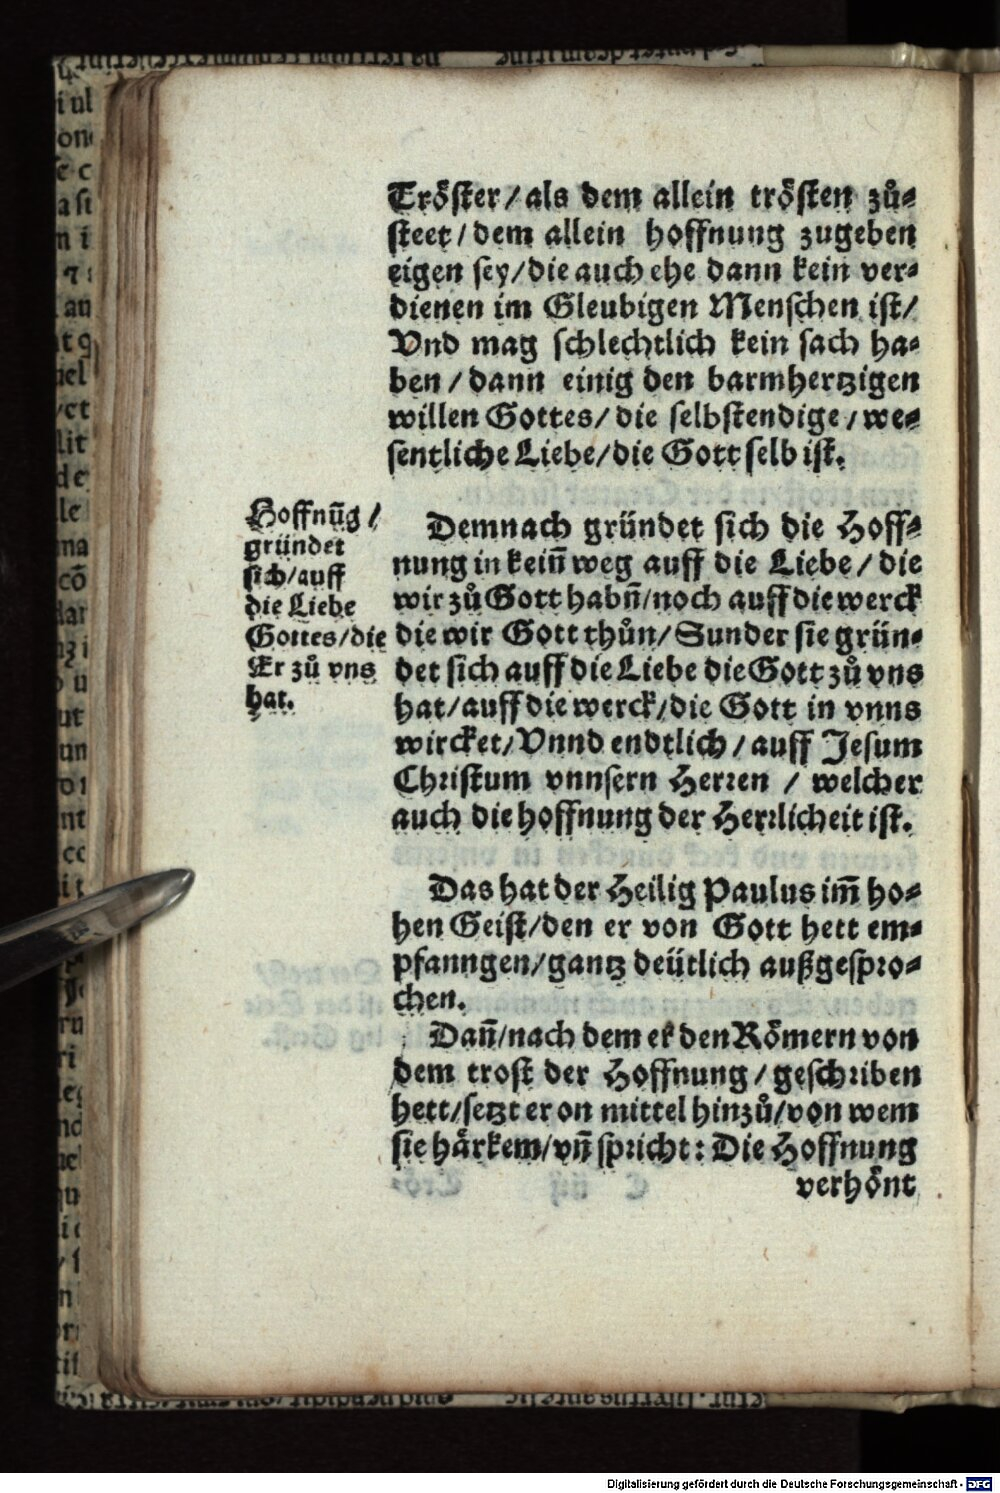 Tröster/als dem allein trösten zů-
steet/dem allein hoffnung zugeben
eigen sey/die auch ehe dann kein ver-
dienen im Gleubigen Menschen ist/
Vnd mag schlechtlich kein sach ha-
ben/dann einig den barmhertzigen
willen Gottes/die selbstendige/we-
sentliche Liebe/die Gott selb ist.
Hoffnūg/
gründet
sich/auff
die Liebe
Gottes/die
Er zů vns
hat.
Demnach gründet sich die Hoff-
nung in kein̄ weg auff die Liebe/die
wir zů Gott habn̄/noch auff die werck
die wir Gott thůn/Sunder sie grün-
det sich auff die Liebe die Gott zů vns
hat/auff die werck/die Gott in vnns
wircket/Vnnd endtlich/auff Jesum
Christum vnnsern Herren/welcher
auch die hoffnung der Herrlicheit ist.
Das hat der Heilig Paulus im̄ ho-
hen Geist/den er von Gott hett em-
pfanngen/gantz deütlich außgespro-
chen.
Dan̄/nach dem er den Römern von
dem trost der Hoffnung/geschriben
hett/setzt er on mittel hinzů/von wem
sie härkem/vn̄ spricht: Die Hoffnung
verhönt
Digitalisierung gefördert durch die Deutsche Forschungsgemeinschaft - DFG